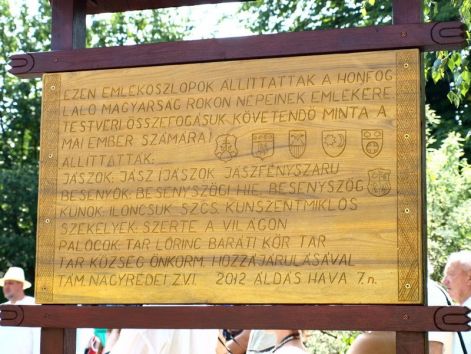 EZEN EMLÉKOSZLOPOK ÁLLÍTTATTAK A HONFOG
LALÓ MAGYARSÁG ROKON NÉPEINEK EMLÉKÉRE
TESTVÉRI ÖSSZEFOGÁSUK KÖVETENDŐ MINTA A
MAI EMBER SZÁMÁRA!
ÁLLÍTTATTÁK:
JÁSZOK: JÁSZ ÍJÁSZOK JÁSZFÉNYSZARU
BESENYŐK: BESENYSZÖGI HÍE. BESENYSZÖG
KUNOK: ILONCSUK SZCS. KUNSZENTMIKLÓS
SZÉKELYEK: SZERTE A VILÁGON
PALÓCOK: TAR LŐRINC BARÁTI KÖR TAR
TAR KÖZSÉG ÖNKORM. HOZZÁJÁRULÁSÁVAL
TÁM. NAGYRÉDEI Z.V.I. 2012 ÁLDÁS HAVA 7.n.